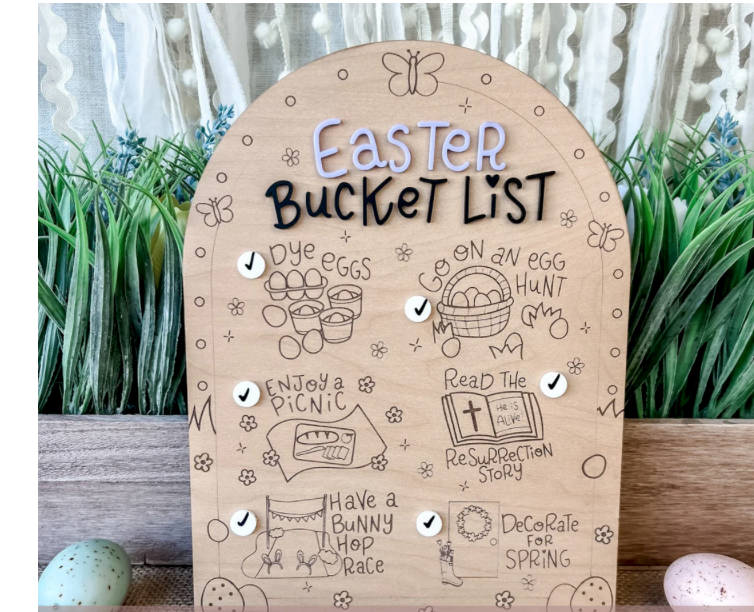 EasTeR
BucKeT LiST
Dye
eGGS
GO ON AN EGG
HUNT
ENJoy a
PiCNiC
ReaD THe
He iS
ALiVe!
ReSuRReCTiON
SToRy
HaVe a
BuNNy
HoP
Race
DeCoRaTe
FoR
SPRiNG